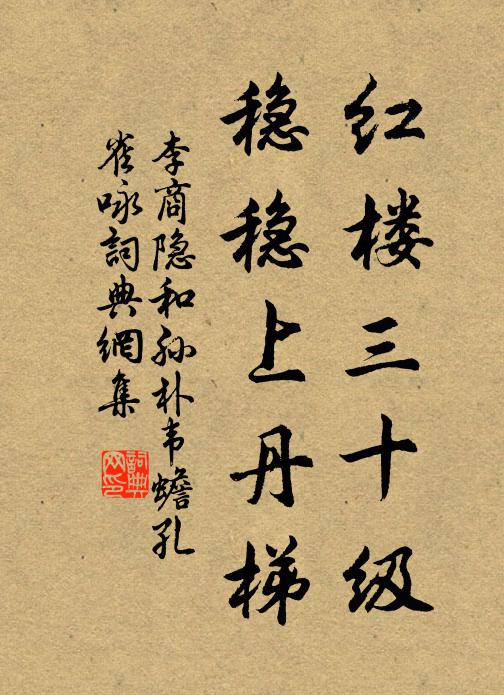 红楼三十级
稳稳上丹梯
李商隐和孙朴韦蟾孔
雀咏詞典網集
詞典
网印